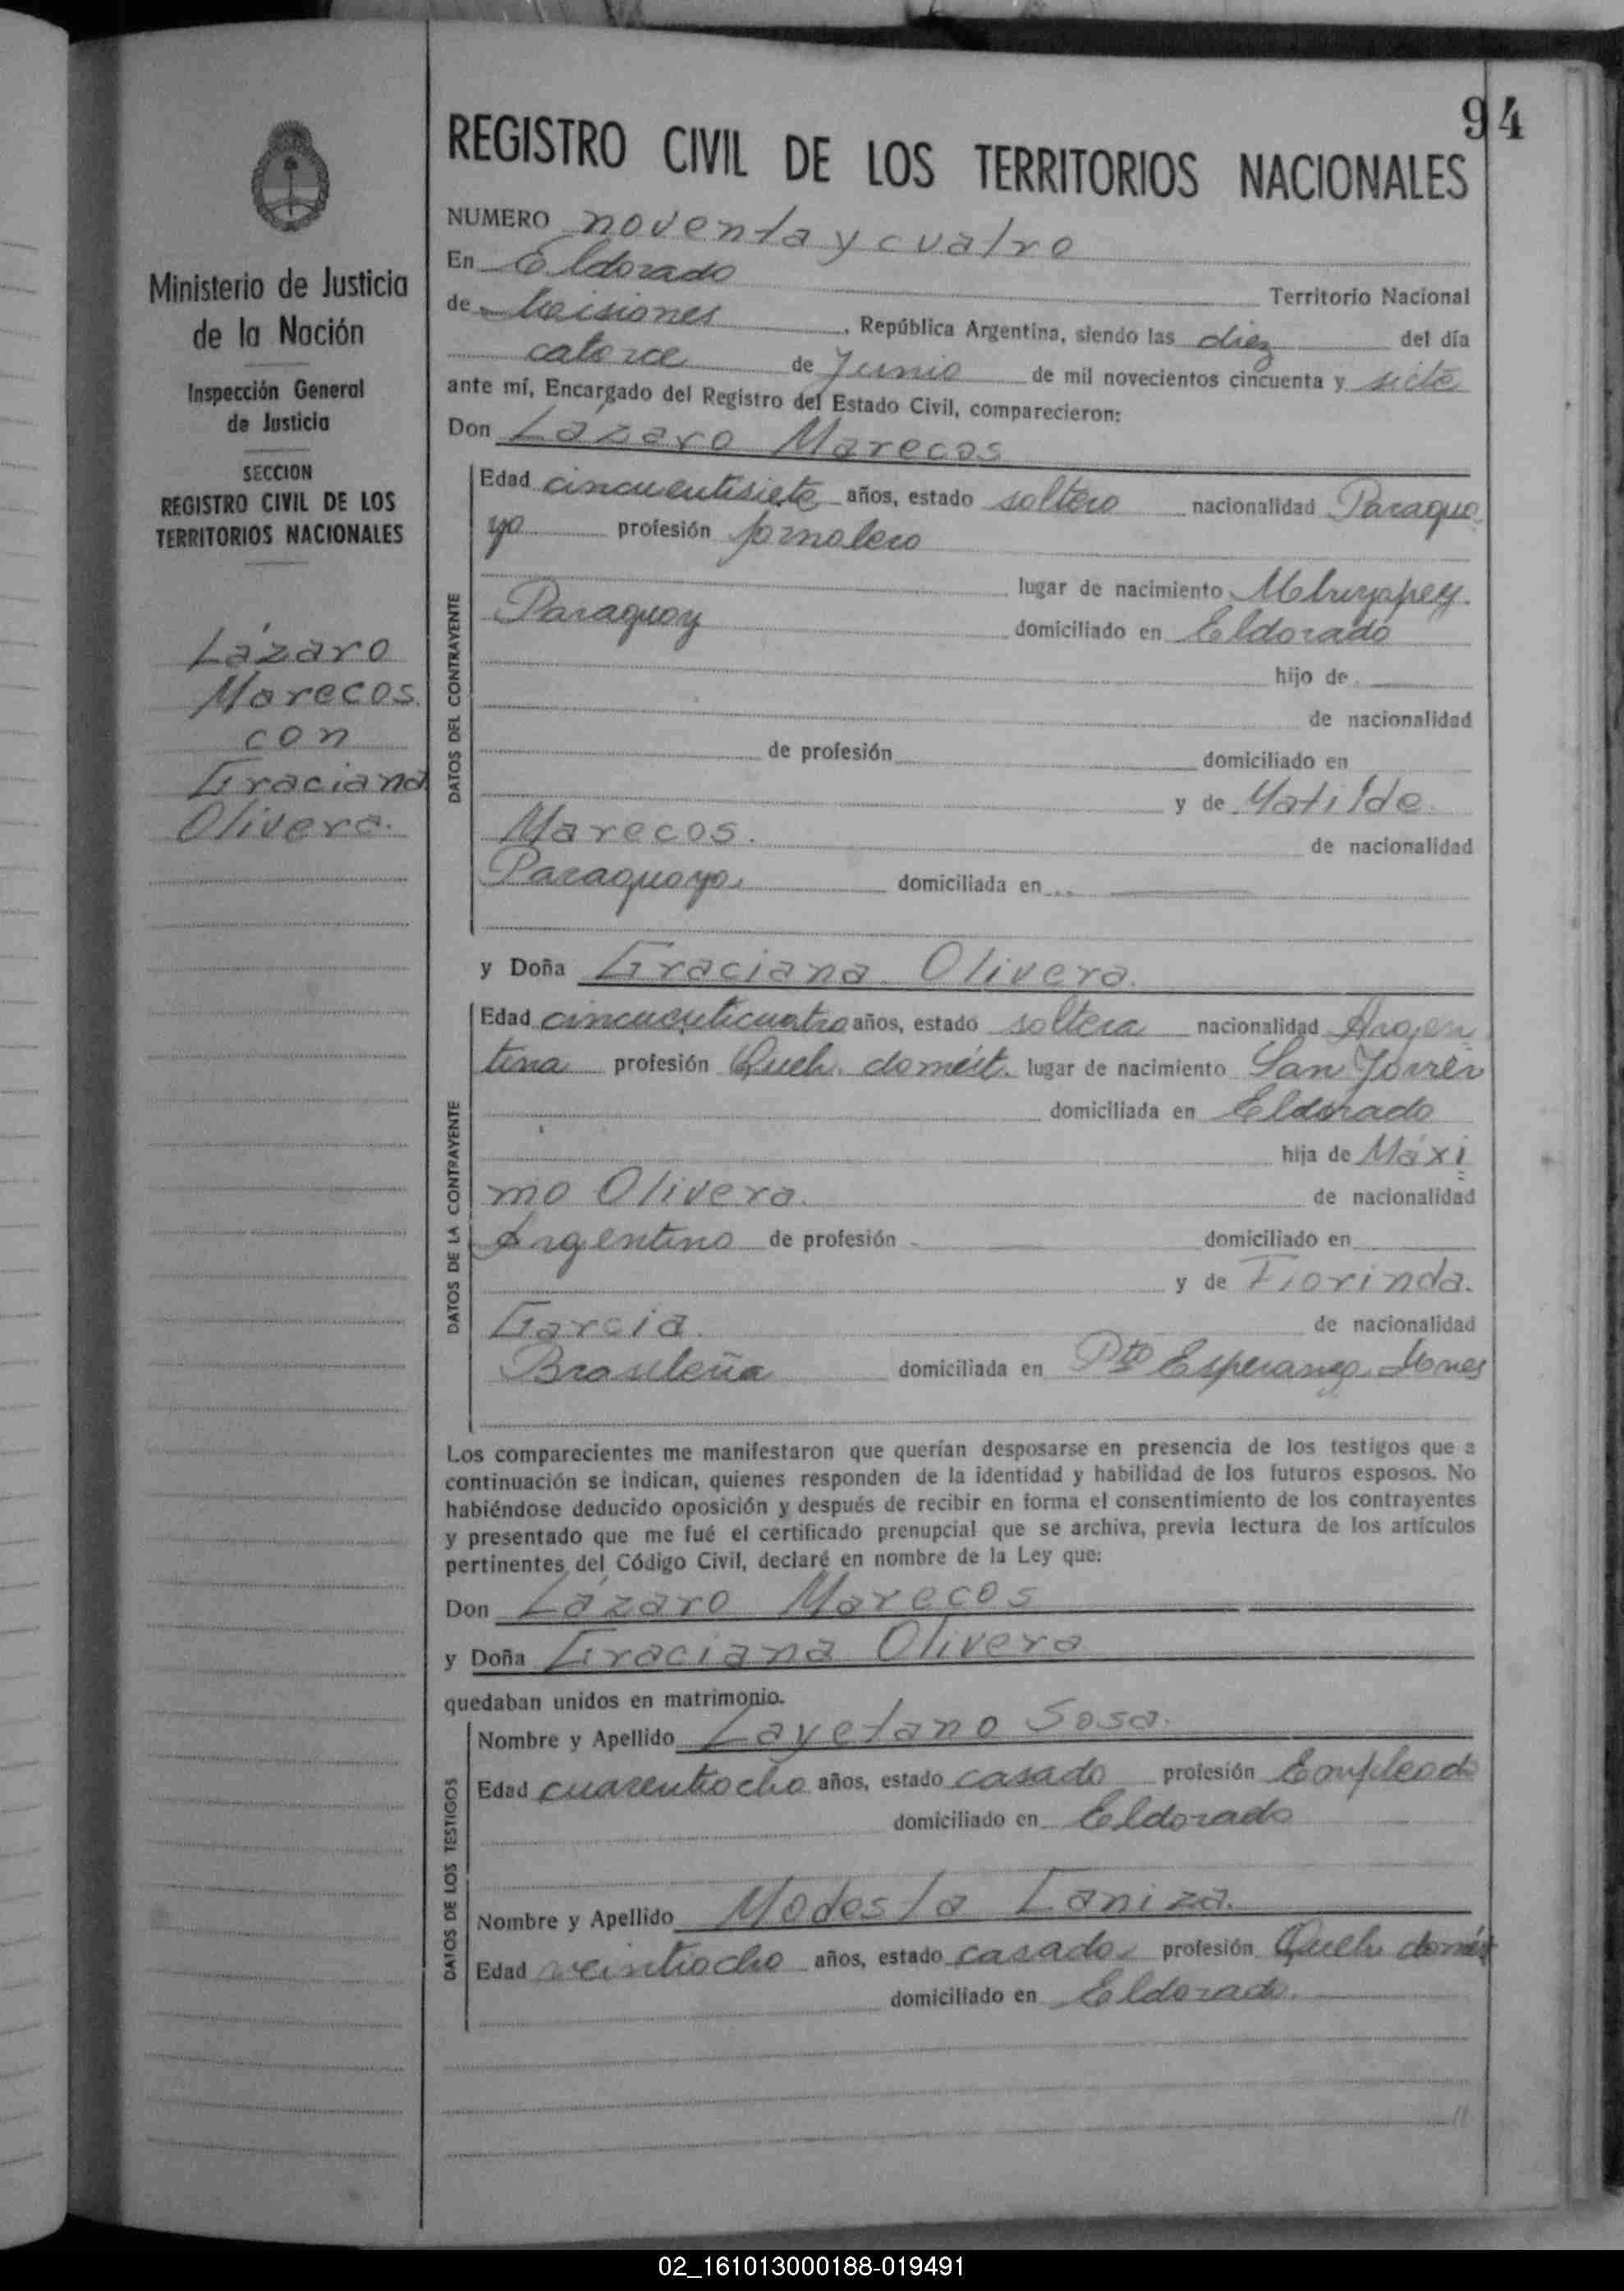 94
REGISTRO CIVIL DE LOS TERRITORIOS NACIONALES
Ministerio de Justicia
de la Nación
Inspección General
de Justicia
SECCION
REGISTRO CIVIL DE LOS
TERRITORIOS NACIONALES
Lázaro
Marecos
con
Graciana
Olivera.
NUMERO noventa y cuatro
En Eldorado Territorio Nacional
de Misiones, República Argentina, siendo las diez del día
catorce de Junio de mil novecientos cincuenta y siete
ante mí, Encargado del Registro del Estado Civil, comparecieron:
Don Lázaro Marecos
DATOS DEL CONTRAYENTE
Edad cincuentisiete años, estado soltero nacionalidad Paragua
yo profesión jornalero
lugar de nacimiento
Paraguay domiciliado en Eldorado
hijo de
de nacionalidad
de profesión domiciliado en
y de Matilde
Marecos. de nacionalidad
Paraguaya. domiciliada en
y Doña Graciana Olivera.
DATOS DE LA CONTRAYENTE
Edad cincuenticuatro años, estado soltera nacionalidad Argen
tina profesión Queh. domést. lugar de nacimiento San
domiciliada en Eldorado
hija de Máxi
mo Olivera. de nacionalidad
Argentino de profesión domiciliado en
y de Florinda.
Garcia. de nacionalidad
Brasileña domiciliada en Pto Esperanza
Los comparecientes me manifestaron que querían desposarse en presencia de los testigos que a
continuación se indican, quienes responden de la identidad y habilidad de los futuros esposos. No
habiéndose deducido oposición y después de recibir en forma el consentimiento de los contrayentes
y presentado que me fué el certificado prenupcial que se archiva, previa lectura de los artículos
pertinentes del Código Civil, declaré en nombre de la Ley que:
Don Lázaro Marecos
y Doña Graciana Olivera
quedaban unidos en matrimonio.
DATOS DE LOS TESTIGOS
Nombre y Apellido Cayetano Sosa.
Edad cuarentiocho años, estado casado profesión Empleado
domiciliado en Eldorado
Nombre y Apellido Modesta Caniza.
Edad veintiocho años, estado casada profesión Queh. domést
domiciliado en Eldorado.
02_161013000188-019491